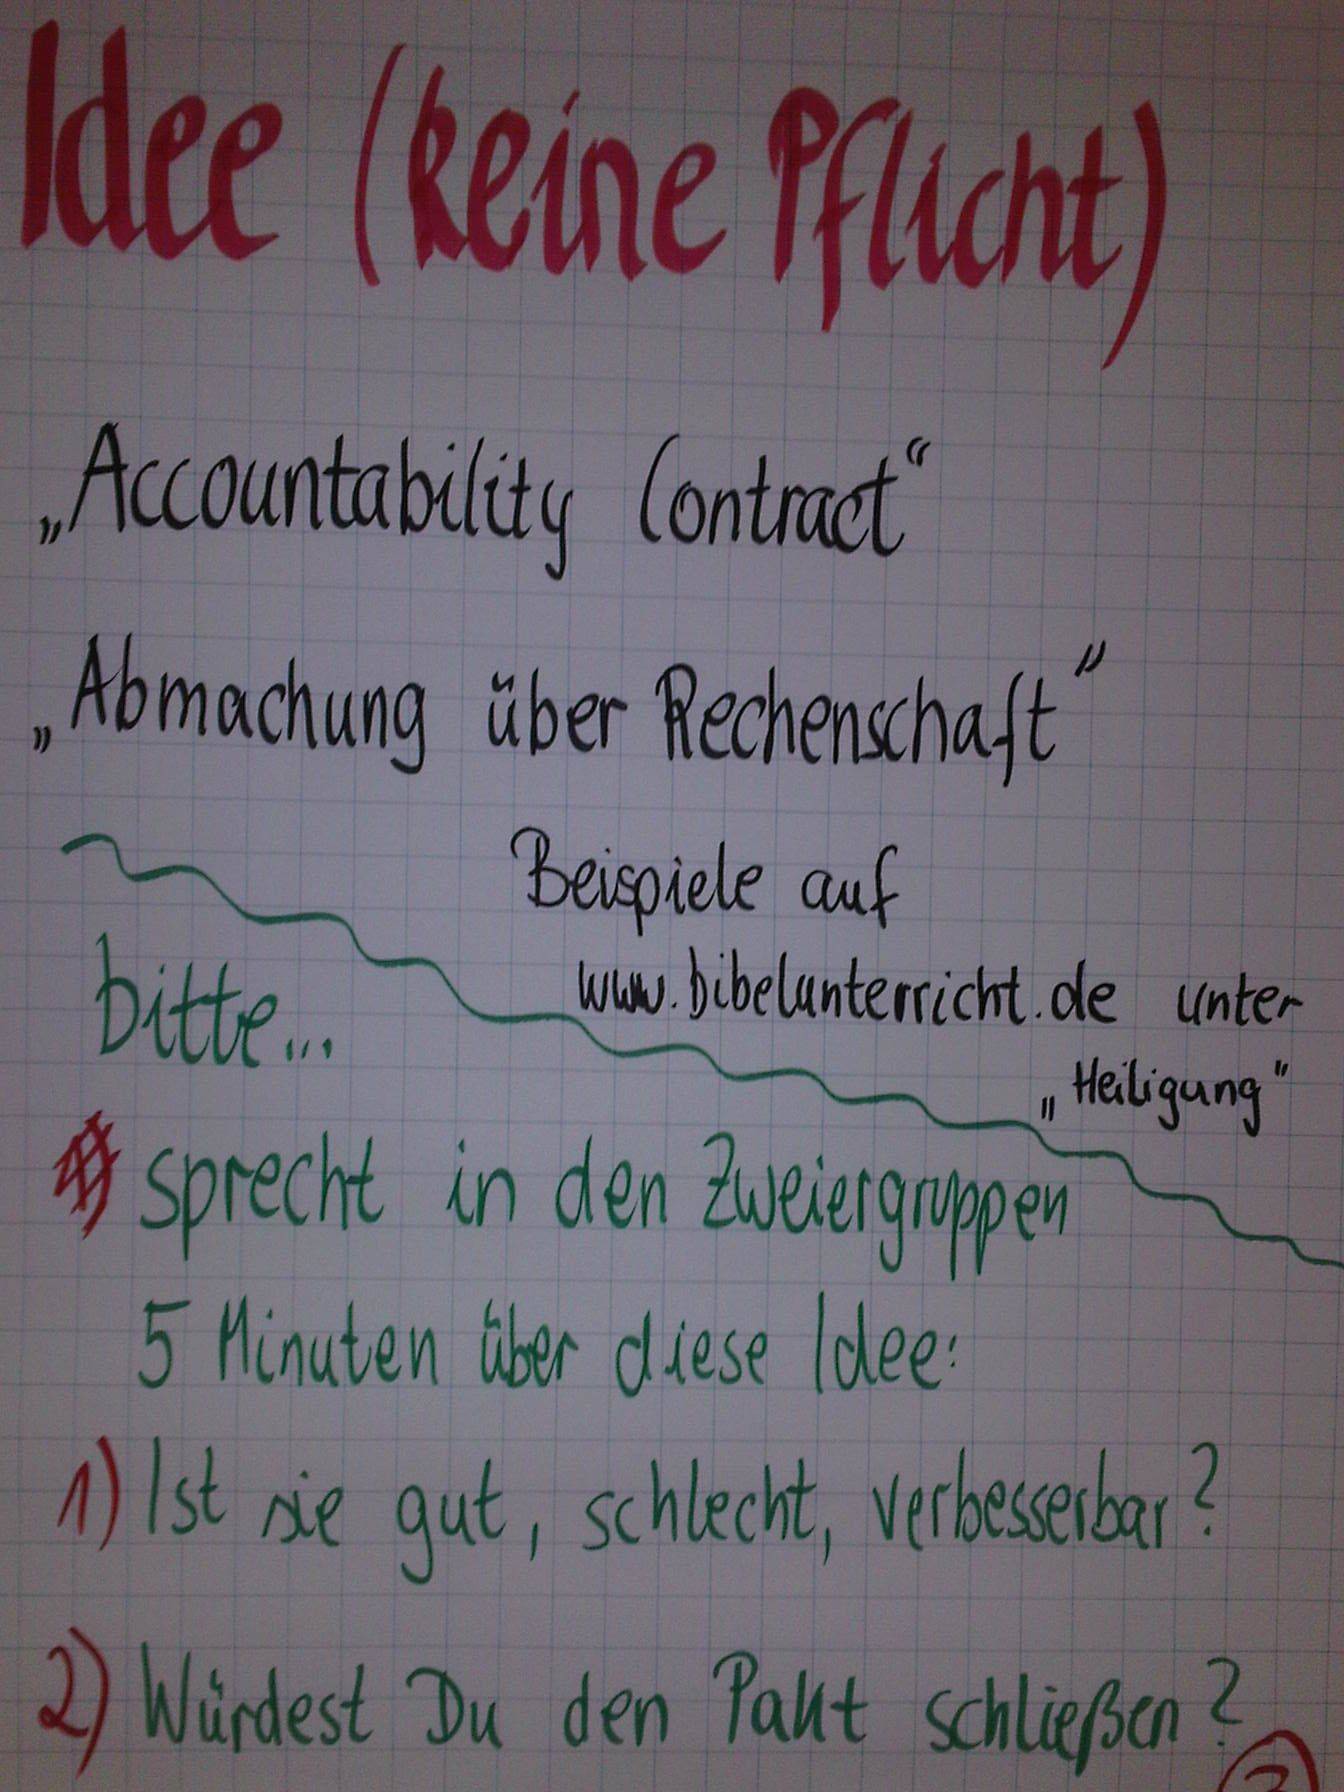 Idee (keine Pflicht)
„Accountability Contract“
„Abmachung über Rechenschaft”
Beispiele auf
www.bibelunterricht.de unter
„Heiligung"
bitte...
sprecht in den Zweiergruppen
5 Minuten über diese Idee:
1) Ist sie gut, schlecht, verbesserbar?
2) Würdest Du den Pakt schließen?